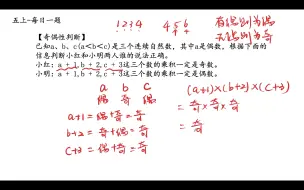 五上-每日一题
1 2 3 4 4 5 6 有偶则为偶
无偶则为奇
【奇偶性判断】
已知a、b、c(a<b<c)是三个连续自然数,其中a是偶数。根据下面的
信息判断小红和小明两人谁的说法正确。
小红:a+1,b+2,c+3这三个数的乘积一定是奇数。
小明:a+1,b+2,c+3这三个数的乘积一定是偶数。
a b c
偶 奇 偶
a+1=偶+奇=奇
b+2=奇+偶=奇
c+3=偶+奇=奇
(a+1)×(b+2)×(c+3)
=奇×奇×奇
=奇